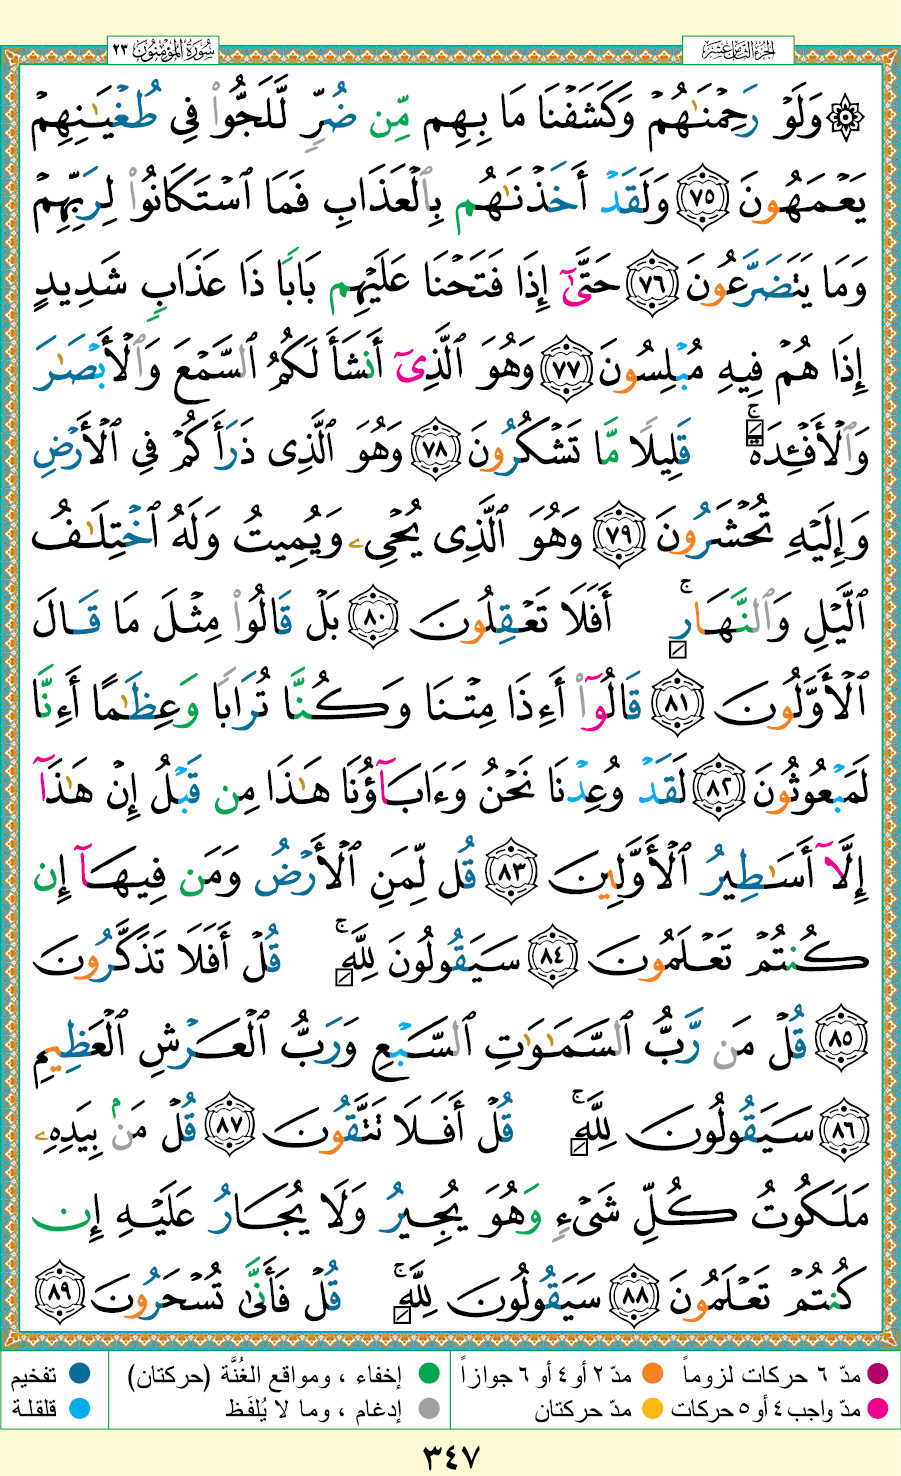 الجزء الثامن عشر
سُورَةُ المُؤْمِنُونَ ٢٣
۞ وَلَوْ رَحِمْنَٰهُمْ وَكَشَفْنَا مَا بِهِم مِّن ضُرٍّ لَّلَجُّوا۟ فِى طُغْيَٰنِهِمْ
يَعْمَهُونَ ٧٥ وَلَقَدْ أَخَذْنَٰهُم بِٱلْعَذَابِ فَمَا ٱسْتَكَانُوا۟ لِرَبِّهِمْ
وَمَا يَتَضَرَّعُونَ ٧٦ حَتَّىٰٓ إِذَا فَتَحْنَا عَلَيْهِم بَابًا ذَا عَذَابٍ شَدِيدٍ
إِذَا هُمْ فِيهِ مُبْلِسُونَ ٧٧ وَهُوَ ٱلَّذِىٓ أَنشَأَ لَكُمُ ٱلسَّمْعَ وَٱلْأَبْصَٰرَ
وَٱلْأَفْـِٔدَةَ ۚ قَلِيلًا مَّا تَشْكُرُونَ ٧٨ وَهُوَ ٱلَّذِى ذَرَأَكُمْ فِى ٱلْأَرْضِ
وَإِلَيْهِ تُحْشَرُونَ ٧٩ وَهُوَ ٱلَّذِى يُحْىِۦ وَيُمِيتُ وَلَهُ ٱخْتِلَٰفُ
ٱلَّيْلِ وَٱلنَّهَارِ ۚ أَفَلَا تَعْقِلُونَ ٨٠ بَلْ قَالُوا۟ مِثْلَ مَا قَالَ
ٱلْأَوَّلُونَ ٨١ قَالُوٓا۟ أَءِذَا مِتْنَا وَكُنَّا تُرَابًا وَعِظَٰمًا أَءِنَّا
لَمَبْعُوثُونَ ٨٢ لَقَدْ وُعِدْنَا نَحْنُ وَءَابَآؤُنَا هَٰذَا مِن قَبْلُ إِنْ هَٰذَآ
إِلَّآ أَسَٰطِيرُ ٱلْأَوَّلِينَ ٨٣ قُل لِّمَنِ ٱلْأَرْضُ وَمَن فِيهَآ إِن
كُنتُمْ تَعْلَمُونَ ٨٤ سَيَقُولُونَ لِلَّهِ ۚ قُلْ أَفَلَا تَذَكَّرُونَ
٨٥ قُلْ مَن رَّبُّ ٱلسَّمَٰوَٰتِ ٱلسَّبْعِ وَرَبُّ ٱلْعَرْشِ ٱلْعَظِيمِ
٨٦ سَيَقُولُونَ لِلَّهِ ۚ قُلْ أَفَلَا تَتَّقُونَ ٨٧ قُلْ مَنۢ بِيَدِهِۦ
مَلَكُوتُ كُلِّ شَىْءٍ وَهُوَ يُجِيرُ وَلَا يُجَارُ عَلَيْهِ إِن
كُنتُمْ تَعْلَمُونَ ٨٨ سَيَقُولُونَ لِلَّهِ ۚ قُلْ فَأَنَّىٰ تُسْحَرُونَ ٨٩
مدّ ٦ حركات لزوماً
مدّ ٢ أو ٤ أو ٦ جوازاً
إخفاء ، ومواقع الغُنَّة (حركتان)
تفخيم
مدّ واجب ٤ أو ٥ حركات
مدّ حركتان
إدغام ، وما لا يُلفَظ
قلقلة
٣٤٧